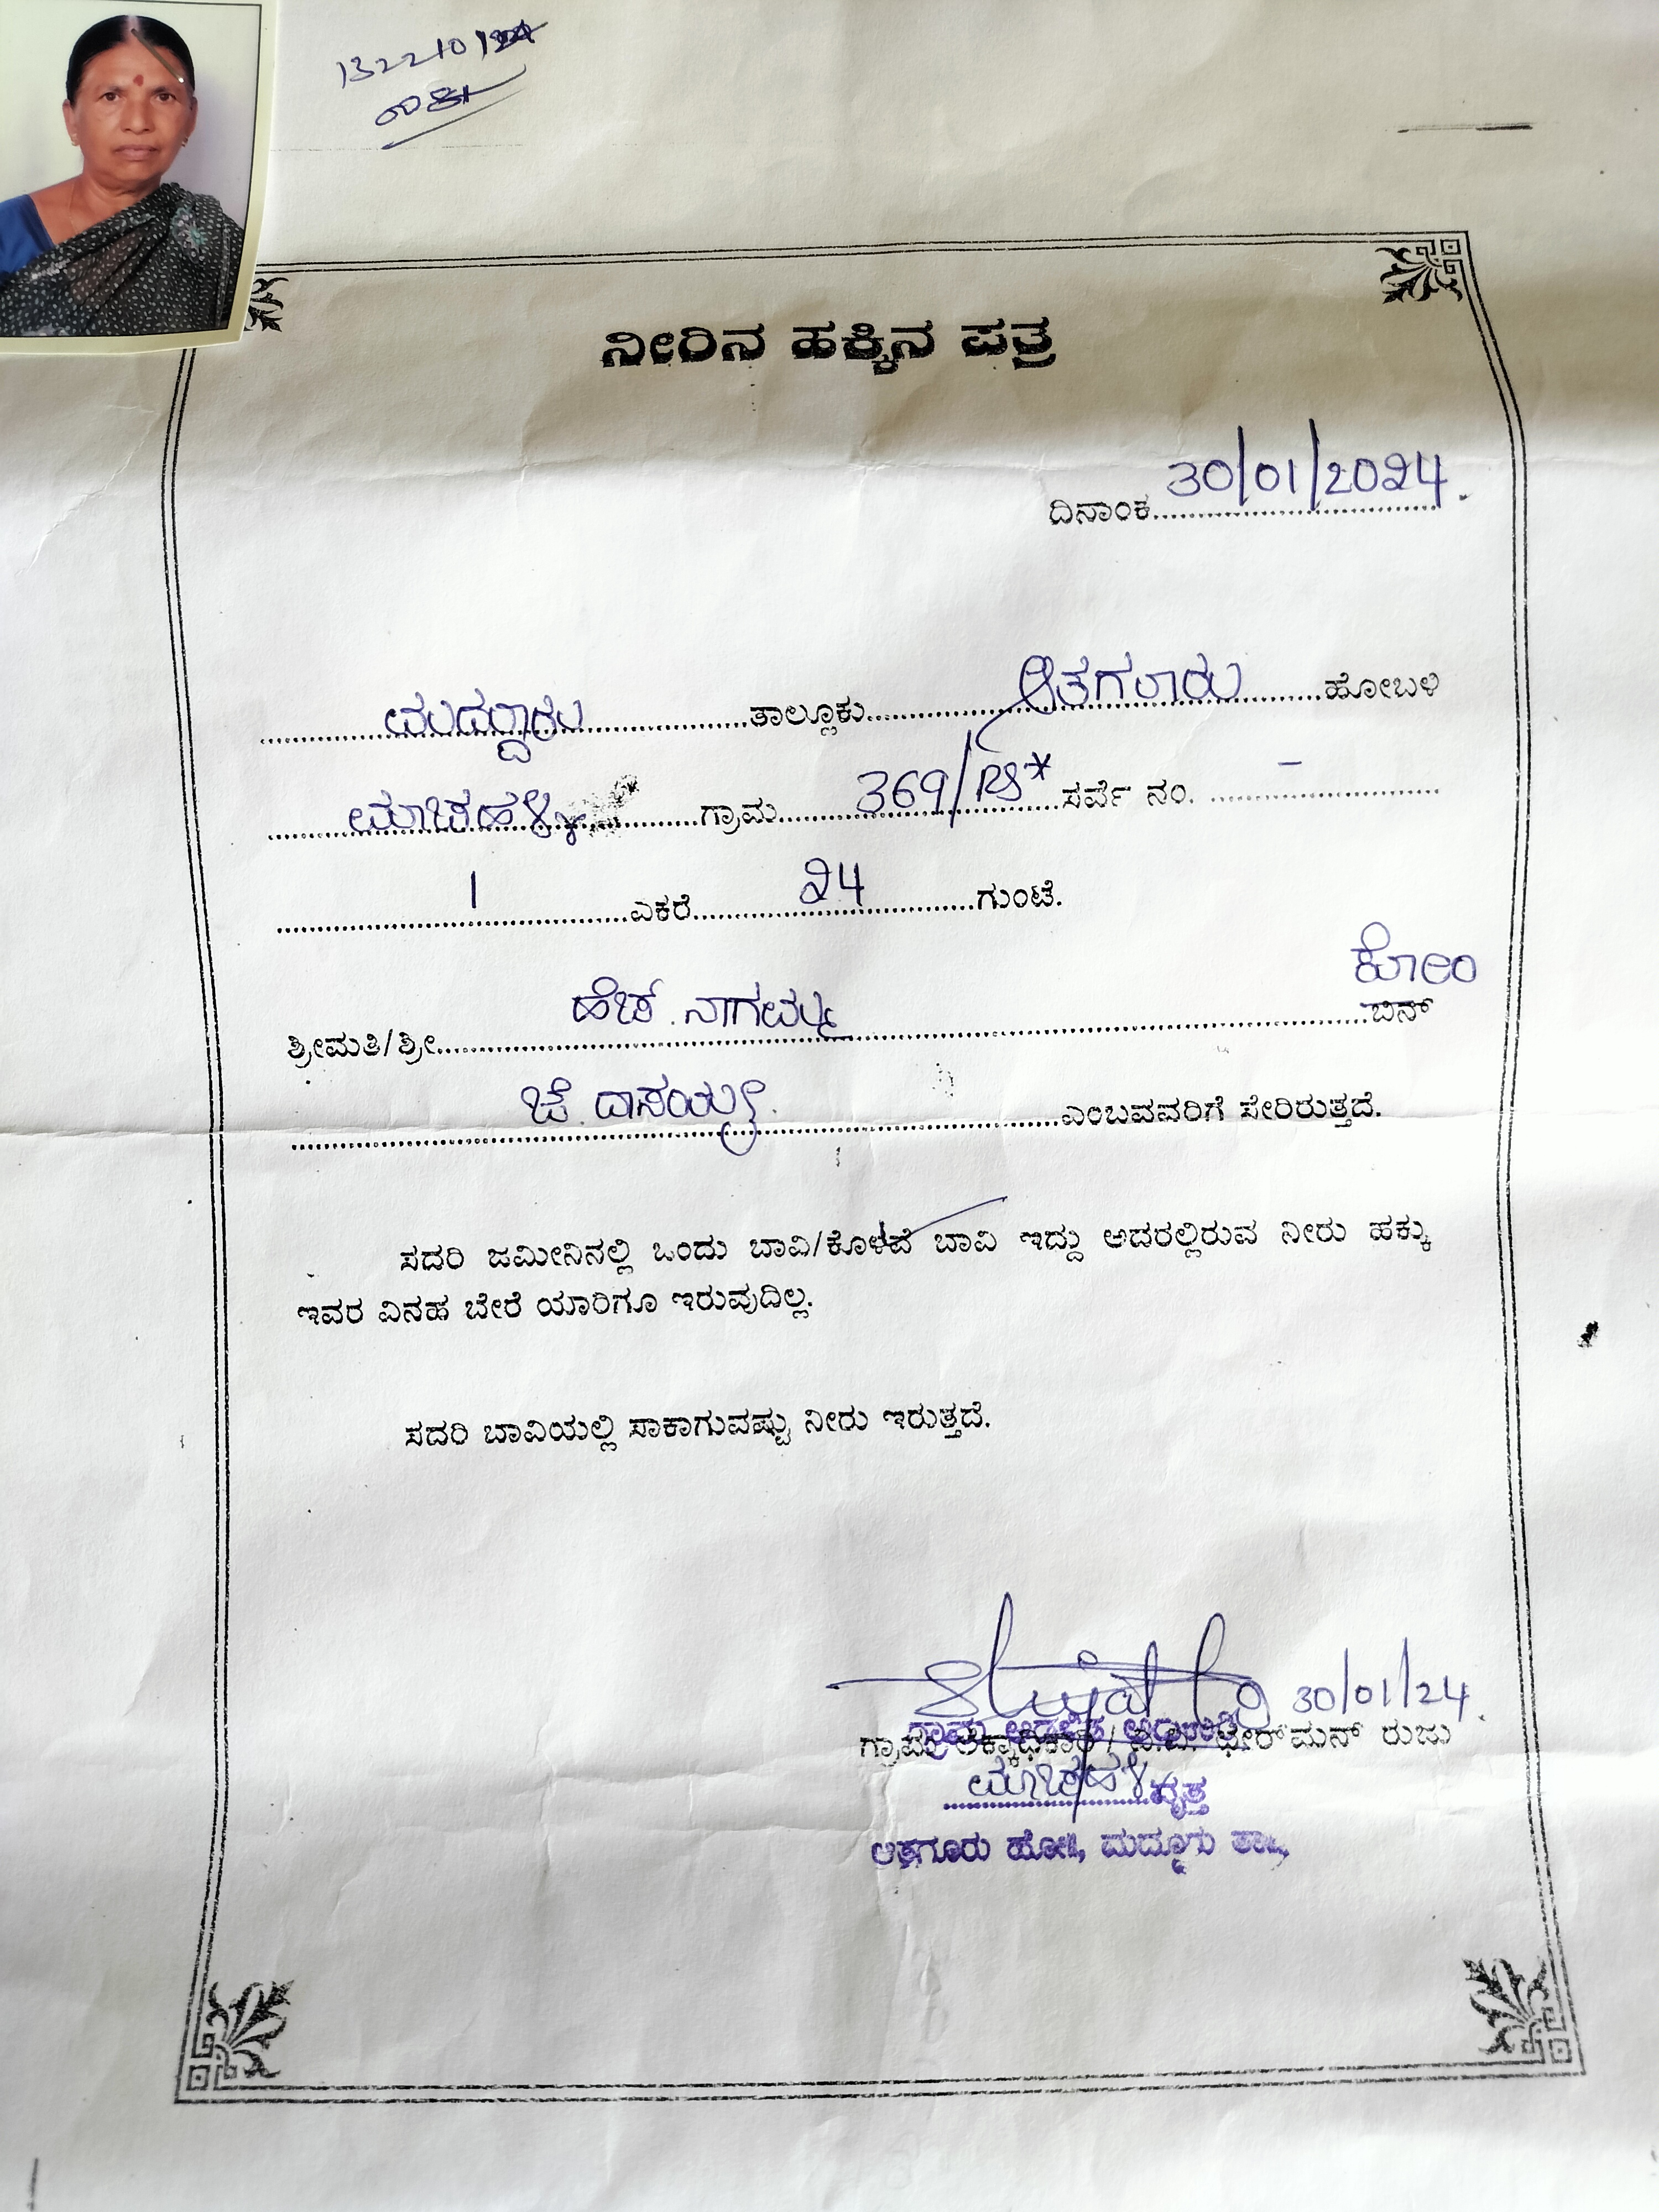 ನೀರಿನ ಹಕ್ಕಿನ ಪತ್ರ
ದಿನಾಂಕ 30/01/2024.
ಮದ್ದೂರು ತಾಲ್ಲೂಕು ಆತಗೂರು ಹೋಬಳಿ
ಮಾಚಹಳ್ಳಿ ಗ್ರಾಮ 369/P5* ಸರ್ವೆ ನಂ. -
1 ಎಕರೆ 24 ಗುಂಟೆ.
ಕೋಂ
ಶ್ರೀಮತಿ/ಶ್ರೀ ಹೆಚ್. ನಾಗಮ್ಮ ಬಿನ್
ಜೆ. ದಾಸಯ್ಯ. ಎಂಬವವರಿಗೆ ಸೇರಿರುತ್ತದೆ.
ಸದರಿ ಜಮೀನಿನಲ್ಲಿ ಒಂದು ಬಾವಿ/ಕೊಳವೆ ಬಾವಿ ಇದ್ದು ಅದರಲ್ಲಿರುವ ನೀರು ಹಕ್ಕು
ಇವರ ವಿನಹ ಬೇರೆ ಯಾರಿಗೂ ಇರುವುದಿಲ್ಲ.
ಸದರಿ ಬಾವಿಯಲ್ಲಿ ಸಾಕಾಗುವಷ್ಟು ನೀರು ಇರುತ್ತದೆ.
30/01/24.
ಗ್ರಾಮ ಆಡಳಿತ ಅಧಿಕಾರಿ
ಗ್ರಾಮ ಲೆಕ್ಕಾಧಿಕಾರಿ / ಛೇರ್‌ಮನ್ ರುಜು
ಮಾಚಹಳ್ಳಿ ವೃತ್ತ
ಆತಗೂರು ಹೋಬಳಿ, ಮದ್ದೂರು ತಾ||